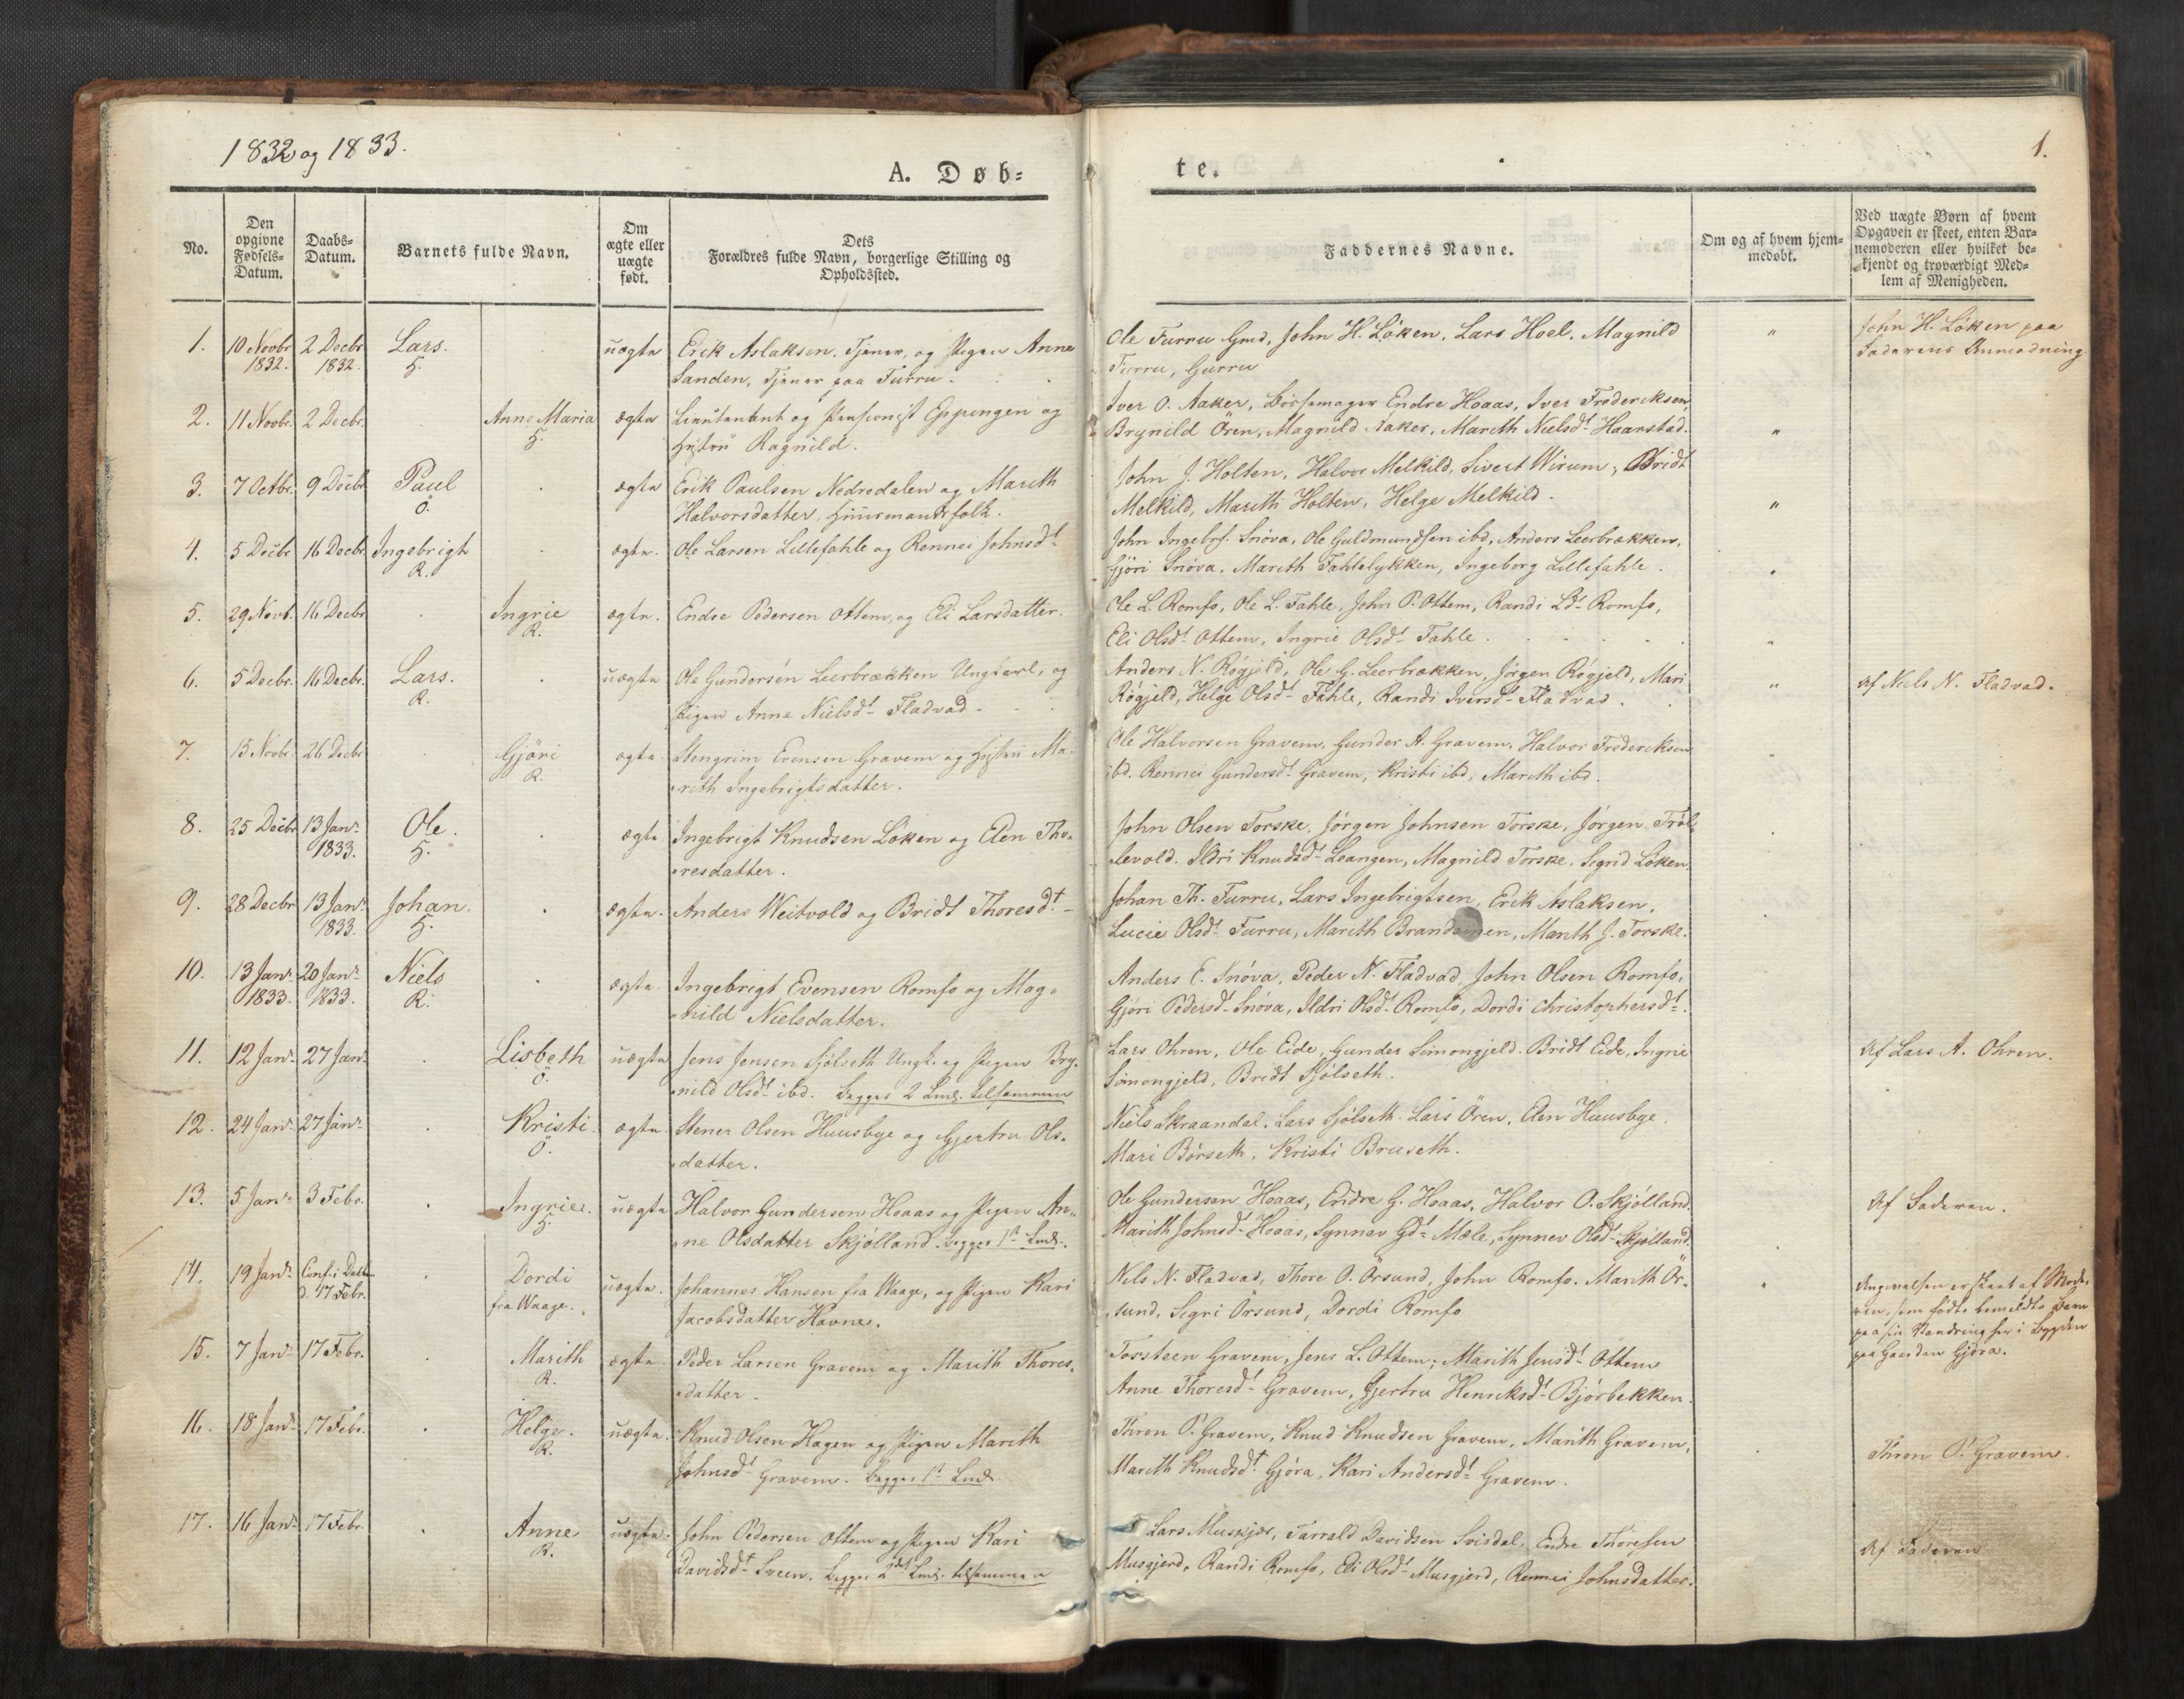 1832 og 1833.
A. Døb=
te.
1.
No.
Den opgivne Fødsels-Datum.
Daabs-Datum.
Barnets fulde Navn.
Om ægte eller uægte født.
Dets Forældres fulde Navn, borgerlige Stilling og Opholdssted.
Faddernes Navne.
Om og af hvem hjemmedøbt.
Ved uægte Børn af hvem Opgaven er skeet, enten Barnemoderen eller hvilket bekjendt og troværdigt Medlem af Menigheden.
1. 10 Novbr 1832. 2 Decbr 1832. Lars. H. uægte Erik Aslaksen, Tjener, og Pigen Anne
Sanden, Tjener paa Furru.
Ole Furru Gmd, John H. Löken, Lars Hoel, Magnild
Furru, Gurru
John H. Löken paa
Faderens Anmodning
2. 11 Novbr. 2 Decbr. Anne Maria H. ægte Lieutenant og Pensionist Eppingen og
Hustru Ragnild.
Iver O. Aaker, Börsemager Endre Hoaas, Iver Frederiksen,
Brynild Ören, Magnild Aaker, Marith Nielsdt Haarstad.
3. 7 Octbr. 9 Decbr Paul Ö. ægte Erik Paulsen Nedredalen og Marith
Halvorsdatter, Huusmandsfolk.
John J. Holten, Halvor Melkild, Sivert Wirum, Bridt
Melkild, Marith Holten, Helge Melkild.
4. 5 Decbr 16 Decbr Ingebrigt R. ægte. Ole Larsen Lillefahle og Rennei Johnsdt
John Ingebr. Snöva, Ole Guldmundsen ibd, Anders Leerbrækken,
Gjöri Snöva, Marith Fahlelykken, Ingeborg Lillefahle.
5. 29 Novb. 16 Decbr Ingrie R. ægte. Endre Pedersen Ottem, og Eli Larsdatter.
Ole L. Romfo, Ole L. Fahle, John P. Ottem, Randi Ldt Romfo,
Eli Olsdt Ottem, Ingrie Olsdt Fahle.
6. 5 Decbr. 16 Decbr. Lars. R. uægte Ole Gundersen Leerbrækken Ungkarl, og
Pigen Anne Nielsdt Fladvad.
Anders N. Rögjeld, Ole G. Leerbrækken, Jörgen Rögjeld, Mari
Rögjeld, Helge Olsdt Fahle, Randi Iversdt Fladvad.
Af Niels N. Fladvad.
7. 15 Novbr. 26 Decbr Gjöri R. ægte. Stengrim Evensen Gravem og Hustru Ma-
rith Ingebrigtsdatter.
Ole Halvorsen Gravem, Gunder A. Gravem, Halvor Frederiksen
ibd. Rennei Gundersdt Gravem, Kristi ibd, Marith ibd.
8. 25 Decbr 13 Janr 1833. Ole. H. ægte Ingebrigt Knudsen Löken og Elen Tho-
resdatter.
John Olsen Torske, Jörgen Johnsen Torske, Jörgen Tröl
levold. Ildri Knudsdt Leangen, Magnild Torske, Sigrid Löken.
9. 28 Decbr 13 Janr 1833. Johan. H. ægte. Anders Weitvold og Bridt Thoresdt
Johan Th. Furru, Lars Ingebrigtsen, Erik Aslaksen,
Lucie Olsdt Furru, Marith, Marith J. Torske.
10. 13 Janr 1833. 20 Janr 1833. Niels R. ægte. Ingebrigt Evensen Romfo og Mag-
nild Nielsdatter.
Anders E. Snöva, Peder N. Fladvad, John Olsen Romfo,
Gjöri Pedersdt Snöva, Ildri Olsdt Romfo, Dordi Christophersdt.
11. 12 Janr 27 Janr Lisbeth Ö. uægte Jens Jensen Sjölseth Ungk. og Pigen Bry-
nild Olsdt ibd. Begges 2 Leierm. tilsammen
Lars Ohren, Ole Eide, Gunder Simongjeld. Bridt Eide, Ingrie
Simongjeld, Bridt Sjölseth.
Af Lars A. Ohren.
12. 24 Janr 27 Janr Kristi. Ö. ægte. Stener Olsen Huusbye og Gjertru Ols-
datter.
Niels Skraandal, Lars Sjölseth. Lars Ören, Elen Huusbye.
Mari Börseth, Kristi Bruseth.
13. 5 Janr 3 Febr. Ingrie. H. uægte Halvor Gundersen Hoaas og Pigen An-
ne Olsdatter Skjölland. Begges 1ste
Ole Gundersen Hoaas, Endre G. Hoaas, Halvor O. Skjölland.
Marith Johnsdt Hoaas, Synnev Gdt Mæle, Synnev Olsdt Skjölland.
Af Faderen.
14. 19 Janr Conf. i d. 17 Febr. Dordi fra Waage. uægte. Johannes Hansen fra Waage, og Pigen Kari
Jacobsdatter Havne.
Nils N. Fladvad, Thore O. Örsund, John Romfo. Marith Ör-
sund, Segri Örsund, Dordi Romfo
Angivelsen er skeet af Mode-
ren, som fødte bemeldte Barn
paa sin Vandring her i Bygden
paa Gaarden Gjöra.
15. 7 Janr 17 Febr. Marith R. ægte. Peder Larsen Gravem og Marith Thores-
datter.
Torsteen Gravem, Jens L. Ottem; Marith Jensdt Ottem
Anne Thoresdt Gravem, Gjertru Henriksdt Bjørbekken.
16. 18 Janr 17 Febr. Helge. R. uægte. Knud Olsen Hagen og Pigen Marith
Johnsdt Gravem. Begges 1ste
Thron P. Gravem, Knud Knudsen Gravem, Marith Gravem,
Marith Knudsdt Gjöra, Kari Andersdt Gravem.
Thron P. Gravem.
17. 16 Janr 17 Febr. Anne R. uægte. John Pedersen Ottem og Pigen Kari
Davidsdt Sveen. Begges tilsammen
Lars Musgjer, Tarrald Davidsen Svisdal, Endre Thoresen
Musgjerd, Randi Romfo, Eli Olsdt Musgjerd, Rennei Johnsdatter.
Af Faderen